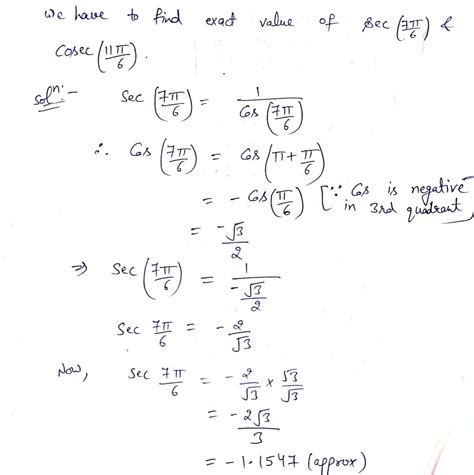 we have to find exact value of sec (7π/6) &
Cosec (11π/6).
solⁿ:- sec (7π/6) = 1/Cos (7π/6)
∴ Cos (7π/6) = Cos (π + π/6)
= - Cos (π/6) [∵ Cos is negative in 3rd quadrant]
= -√3/2
⇒ Sec (7π/6) = 1/(-√3/2)
Sec 7π/6 = -2/√3
Now, sec 7π/6 = -2/√3 × √3/√3
= -2√3/3
= -1.1547 (approx)